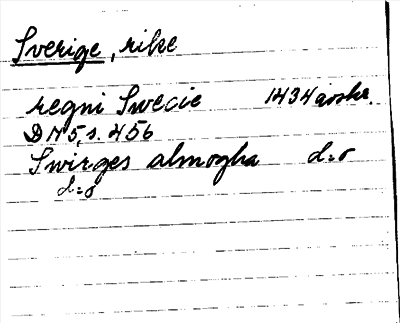 Sverige, rike
regni Swecie 1434 avskr.
DN 5, s. 456
Swirges almogha d:o
d:o